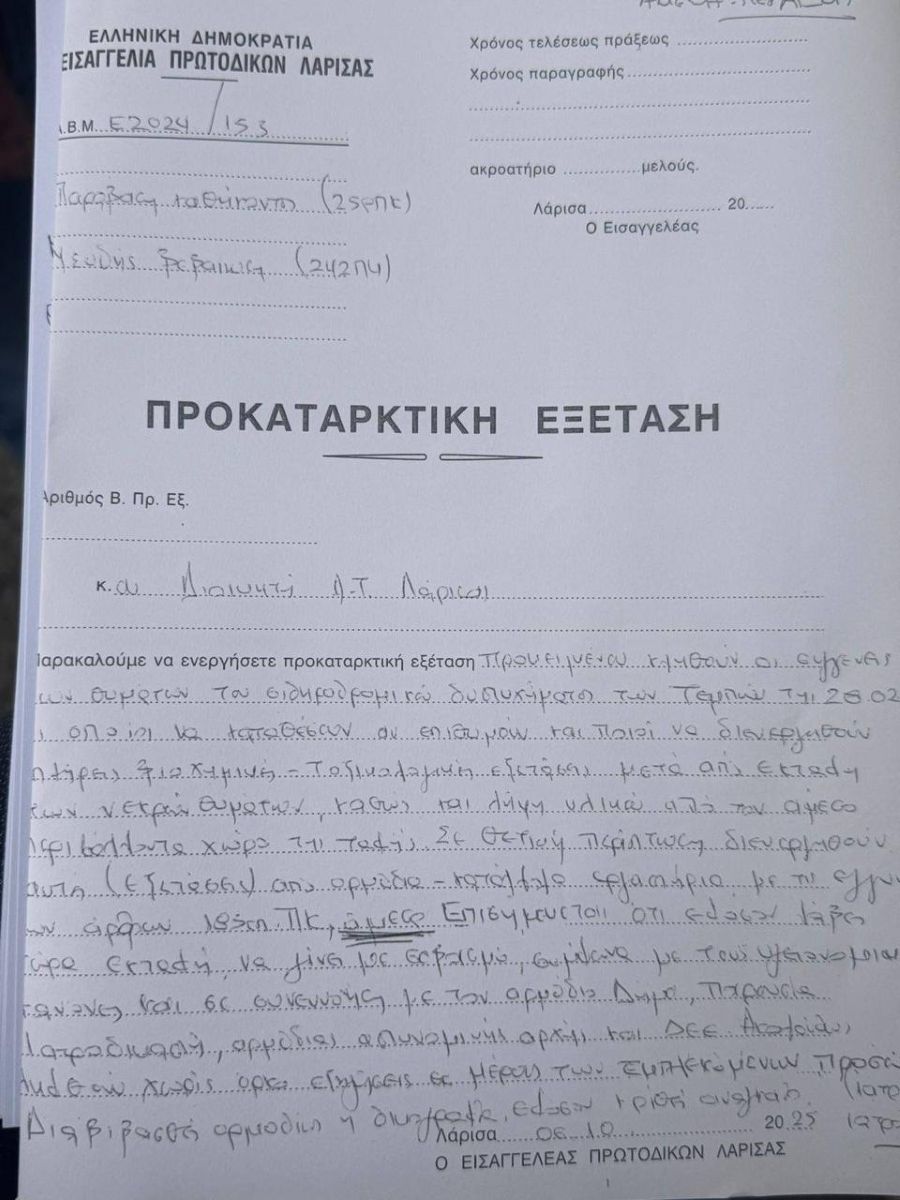 ΕΛΛΗΝΙΚΗ ΔΗΜΟΚΡΑΤΙΑ
ΕΙΣΑΓΓΕΛΙΑ ΠΡΩΤΟΔΙΚΩΝ ΛΑΡΙΣΑΣ
.Β.Μ. Ε2024/153
Παράβαση καθήκοντος (259ΠΚ)
Ψευδής βεβαίωση (242ΠΚ)
Χρόνος τελέσεως πράξεως
Χρόνος παραγραφής
ακροατήριο μελούς.
Λάρισα 20
Ο Εισαγγελέας
ΠΡΟΚΑΤΑΡΚΤΙΚΗ ΕΞΕΤΑΣΗ
Αριθμός Β. Πρ. Εξ.
κ. Διοικητή Α.Τ. Λάρισας
Παρακαλούμε να ενεργήσετε προκαταρκτική εξέταση προκειμένου κληθούν οι συγγενείς
των θυμάτων του σιδηροδρομικού δυστυχήματος των Τεμπών της 28.02
οποίοι να καταθέσουν αν επιθυμούν και ποιοί να διενεργηθούν
πλήρεις βιοχημικές - τοξικολογικές εξετάσεις μετά από εκταφή
των νεκρών θυμάτων, καθώς και λήψη υλικού από τον άμεσο
περιβάλλοντα χώρο της ταφής. Σε θετική περίπτωση διενεργηθούν
αυτές (εξετάσεις) από αρμόδια - κατάλληλα εργαστήρια με τις
των άρθρων ΠΚ, άμεσα Επισημαίνεται ότι εφόσον λάβει
χώρα εκταφή, να γίνει με σεβασμό, σύμφωνα με τους υγειονομικούς
κανόνες και σε συνεννόηση με τον αρμόδιο Δήμο, παρουσία
Ιατροδικαστή, αρμόδιας αστυνομικής αρχής και
χωρίς όρκο εξηγήσεις εκ μέρους των εμπλεκομένων
Διαβιβασθεί αρμοδίως η δικογραφία, εφόσον κριθεί αναγκαίο
Λάρισα 06.10 2025
Ο ΕΙΣΑΓΓΕΛΕΑΣ ΠΡΩΤΟΔΙΚΩΝ ΛΑΡΙΣΑΣ